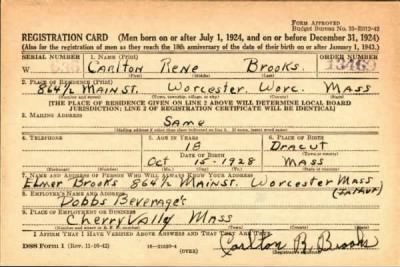 FORM APPROVED
Budget Bureau No. 33-R012-42
REGISTRATION CARD (Men born on or after July 1, 1924, and on or before December 31, 1924)
(Also for the registration of men as they reach the 18th anniversary of the date of their birth on or after January 1, 1943.)
SERIAL NUMBER
1. NAME (Print)
ORDER NUMBER
W
Carlton Rene Brooks.
13460
(First) (Middle) (Last)
2. PLACE OF RESIDENCE (Print)
864½ Main St. Worcester, Worc. Mass
(Number and street) (Town, township, village, or city) (County) (State)
[THE PLACE OF RESIDENCE GIVEN ON LINE 2 ABOVE WILL DETERMINE LOCAL BOARD
JURISDICTION; LINE 2 OF REGISTRATION CERTIFICATE WILL BE IDENTICAL]
3. MAILING ADDRESS
Same
4. TELEPHONE
5. AGE IN YEARS
6. PLACE OF BIRTH
18
Dracut
DATE OF BIRTH
Oct 15-1928
Mass
7. NAME AND ADDRESS OF PERSON WHO WILL ALWAYS KNOW YOUR ADDRESS
Elmer Brooks 864½ Main St. Worcester Mass
(Father)
8. EMPLOYER'S NAME AND ADDRESS
Dobbs Beverages
9. PLACE OF EMPLOYMENT OR BUSINESS
Cherry Vally Mass
(Number and street or R. F. D. number) (Town) (County) (State)
I AFFIRM THAT I HAVE VERIFIED ABOVE ANSWERS AND THAT THEY ARE TRUE.
DSS Form 1 (Rev. 11-16-42)
(OVER)
Carlton R. Brooks